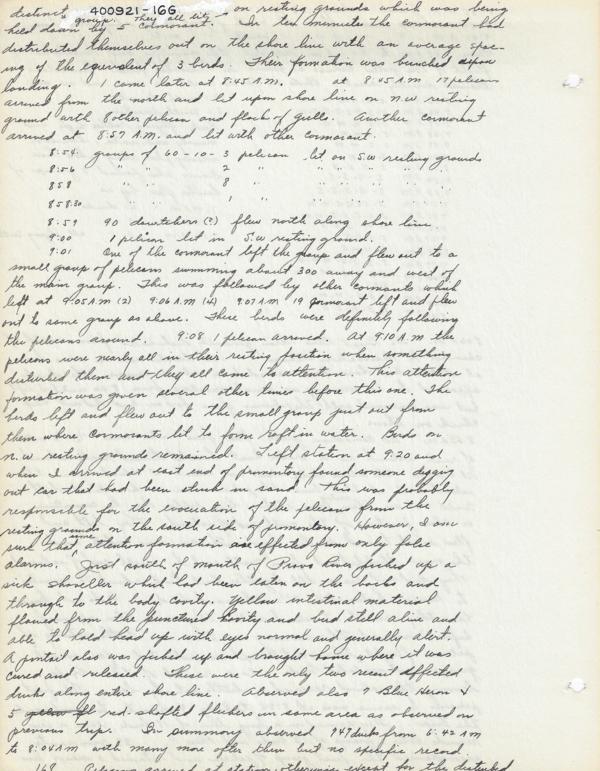 distinct group. They all lit on resting grounds which was being
400921-166
held down by 5 cormorant. In ten minutes the cormorant had
distributed themselves out on the shore line with an average spac-
ing of the equivalent of 3 birds. Their formation was bunched upon
landing. 1 came later at 8:45 A.M. at 8:45 A.M 17 pelicans
arrived from the north and lit upon shore line on N.W resting
ground with 8 other pelican and flock of gulls. Another cormorant
arrived at 8:57 A.M. and lit with other cormorant.
8:54 groups of 60-10-3 pelican lit on S.W resting grounds
8:56 " " 2 " " " " "
858 " " 8 " " " " "
858:30 1 " " " " "
8:59 90 dowitchers (?) flew north along shore line
9:00 1 pelican lit in S.W resting ground.
9:01 One of the cormorant left the group and flew out to a
small group of pelicans swimming about 300 away and west of
the main group. This was followed by other cormorants which
left at 9:05 A.M (2) 9:06 A.M (4) 9:07 A.M 19 cormorant left and flew
out to same group as above. These birds were definitely following
the pelicans around. 9:08 1 pelican arrived. At 9:10 A.M the
pelicans were nearly all in their resting position when something
disturbed them and they all came to attention. This attention
formation was given several other times before this one. The
birds left and flew out to the small group just out from
them where cormorants lit to form raft in water. Birds on
N.W resting grounds remained. Left station at 9:20 and
when I arrived at east end of promontory found someone digging
out car that had been stuck in sand. This was probably
responsible for the evacuation of the pelicans from the
resting grounds on the south side of promontory. However, I am
sure that some attention formation are effected from only false
alarms. Just south of mouth of Provo River picked up a
sick shoveller which had been eaten on the backs and
through to the body cavity. Yellow intestinal material
flowed from the punctured cavity and bird still alive and
able to hold head up with eyes normal and generally alert.
A pintail also was picked up and brought home where it was
cured and released. These were the only two recent affected
ducks along entire shore line. Observed also 7 Blue Heron &
5 red shafted flickers in same area as observed on
previous trip. In summary observed 949 ducks from 6:42 AM
to 8:04 AM with many more after then but no specific record.
168 Pelicans around at station otherwise except for the disturbed